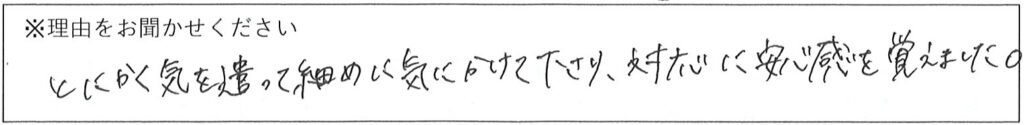 ※理由をお聞かせください
とにかく気を遣って、細めに気にかけて下さり、対応に安心感を覚えました。